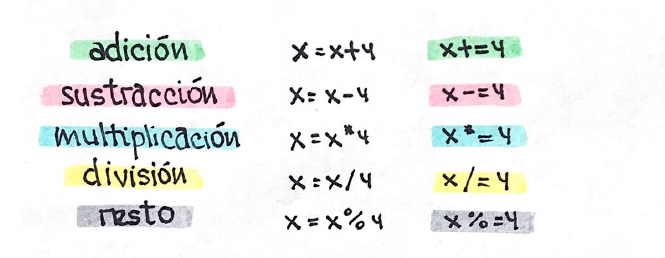 adición x=x+4 x+=4
sustracción x=x-4 x-=4
multiplicación x=x*4 x*=4
división x=x/4 x/=4
resto x=x%4 x%=4